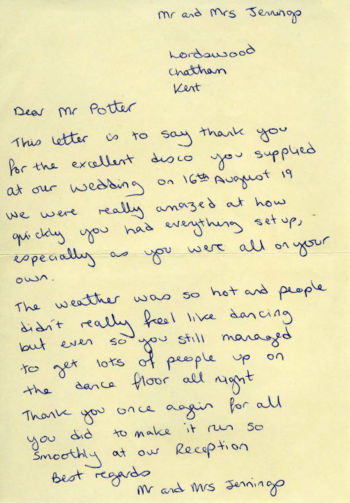 Mr and Mrs Jennings
Lordswood
Chatham
Kent
Dear Mr Potter
This letter is to say thank you
for the excellent disco you supplied
at our wedding on 16th August 19
we were really amazed at how
quickly you had everything set up,
especially as you were all on your
own.
The weather was so hot and people
didn't really feel like dancing
but even so you still managed
to get lots of people up on
the dance floor all night
Thank you once again for all
you did to make it run so
smoothly at our Reception
Best regards
Mr and Mrs Jennings